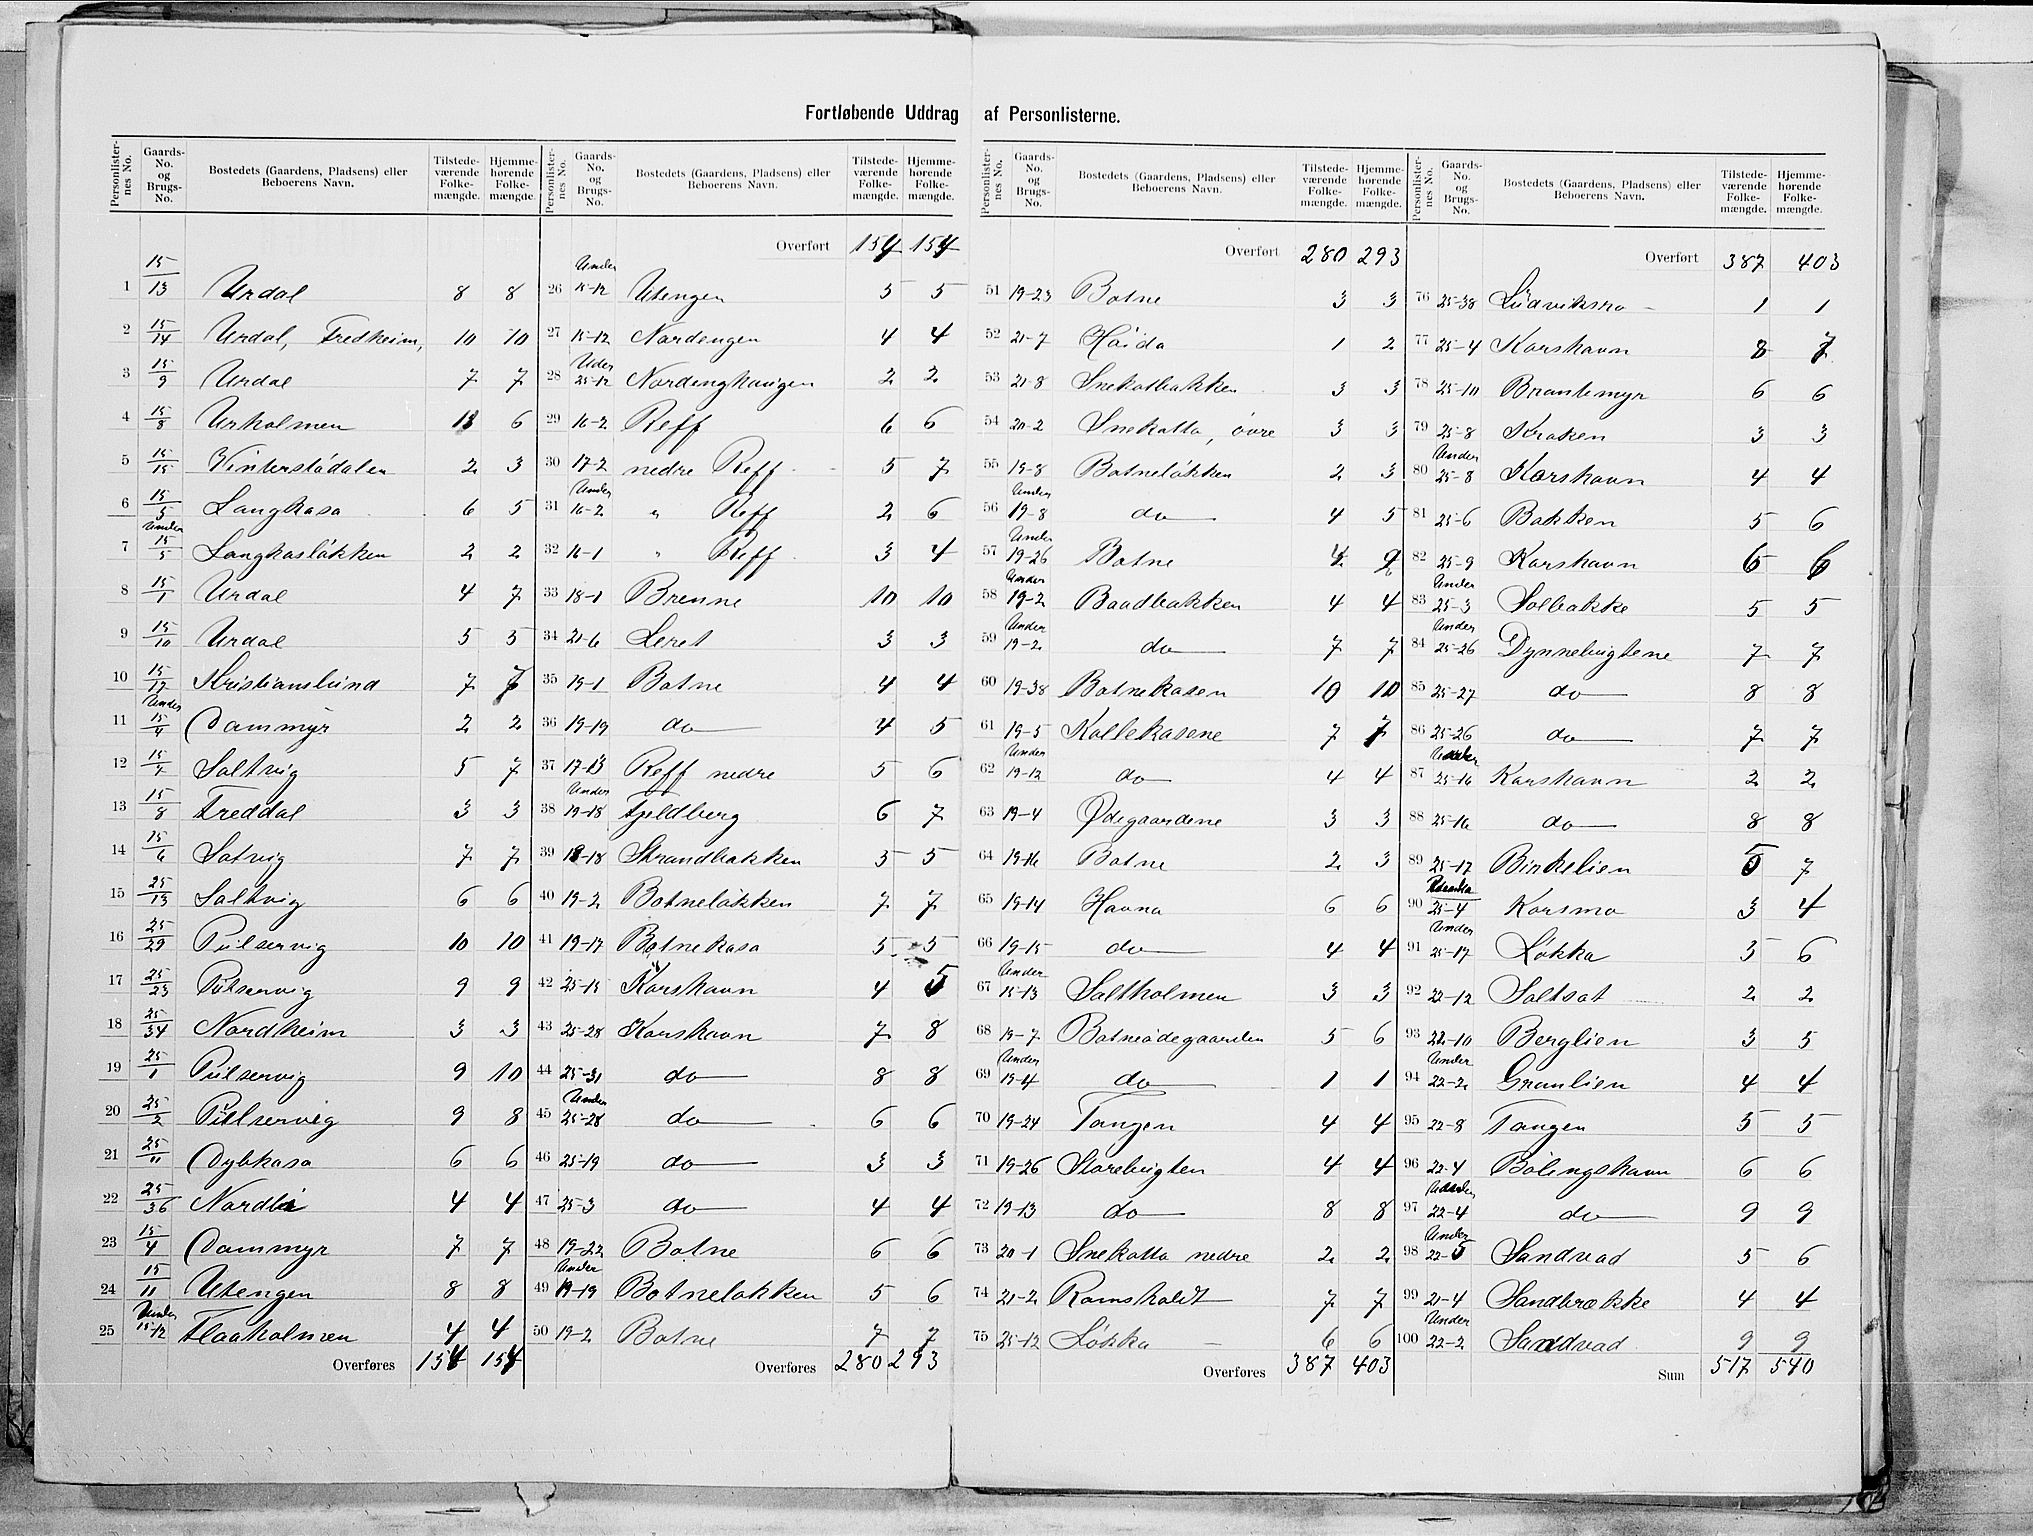 Fortløbende Uddrag af Personlisterne.
Personlister-nes No. Gaards-No. og Brugs-No. Bostedets (Gaardens, Pladsens) eller Beboerens Navn. Tilstede-værende Folke-mængde. Hjemme-hørende Folke-mængde.
1 15/13 Urdal 8 8
2 15/14 Urdal, Fredheim, 10 10
3 15/9 Urdal 7 7
4 15/8 Urholmen 6
5 15/15 Vinterstødalen 2 3
6 15/5 Langkasa 6 5
7 Under 15/5 Langkasløkken 2 2
8 15/1 Urdal 4 7
9 15/10 Urdal 5 5
10 15/17 Kristianslund 7 7
11 Under 15/4 Dammyr 2 2
12 15/7 Saltvig 5 7
13 15/8 Freddal 3 3
14 15/6 Satvig 7 7
15 25/13 Saltvig 6 6
16 25/29 Pulservig 10 10
17 25/23 Pulservig 9 9
18 25/34 Nordheim 3 3
19 25/1 Pulservig 9 10
20 25/2 Pulservig 9 8
21 25/11 Dybkasa 6 6
22 25/36 Nordli 4 4
23 15/4 Dammyr 7 7
24 15/11 Utengen 8 8
25 Under 15-12 Flaaholmen 4 4
Overføres 154 154
Personlister-nes No. Gaards-No. og Brugs-No. Bostedets (Gaardens, Pladsens) eller Beboerens Navn. Tilstede-værende Folke-mængde. Hjemme-hørende Folke-mængde.
Overført 154 154
26 Under 15-12 Utengen 5 5
27 15-12 Nordengen 4 4
28 Uder 25-12 Nordenghaugen 2 2
29 16-2 Reff 6 6
30 17-2 nedre Reff 5 7
31 Under 16-2 " Reff 2 6
32 16-1 " Reff 3 4
33 18-1 Brenne 10 10
34 21-6 Leret 3 3
35 19-1 Botne 4 4
36 19-19 do 4 5
37 17-13 Reff nedre 5 6
38 Under 19-18 Fjeldberg 6 7
39 19-18 Strandbakken 5 5
40 19-2 Botneløkken 7 7
41 19-17 Botnekasa 5 5
42 25-15 Korshavn 4 5
43 25-28 Korshavn 7 8
44 25-31 do 8 8
45 Under 25-28 do 6 6
46 25-19 do 3 3
47 25-3 do 4 4
48 19-22 Botne 6 6
49 Under 19-19 Botneløkken 5 6
50 19-2 Botne 7 7
Overføres 280 293
Personlister-nes No. Gaards-No. og Brugs-No. Bostedets (Gaardens, Pladsens) eller Beboerens Navn. Tilstede-værende Folke-mængde. Hjemme-hørende Folke-mængde.
Overført 280 293
51 19-23 Botne 3 3
52 21-7 Høida 1 2
53 21-8 Snekotbakken 3 3
54 20-2 Snekotta, øvre 3 3
55 19-8 Botneløkken 2 3
56 Under 19-8 do 4 5
57 Under 19-26 Botne
58 Under 19-2 Baadbakken 4 4
59 Under 19-2 do 7 7
60 19-38 Botnekasen 10 10
61 19-5 Kollekasene 7 7
62 Under 19-12 do 4 4
63 19-4 Ødegaardene 3 3
64 19-16 Botne 2 3
65 19-14 Havna 6 6
66 19-15 do 4 4
67 Under 15-13 Saltholmen 3 3
68 19-7 Botneødegaarden 5 6
69 Under 19-4 do 1 1
70 19-24 Tangen 4 4
71 19-26 Storebugten 4 4
72 19-13 do 8 8
73 20-1 Snekotta nedre 2 2
74 21-2 Ramsholdt 7 7
75 25-12 Løkka 6 6
Overføres 387 403
Personlister-nes No. Gaards-No. og Brugs-No. Bostedets (Gaardens, Pladsens) eller Beboerens Navn. Tilstede-værende Folke-mængde. Hjemme-hørende Folke-mængde.
Overført 387 403
76 25-38 Ludviksro 1 1
77 25-4 Korshavn 8 7
78 25-10 Brantemyr 6 6
79 25-8 Kraken 3 3
80 Under 25-8 Korshavn 4 4
81 25-6 Bakken 5 6
82 25-9 Korshavn 6 6
83 Under 25-3 Solbakke 5 5
84 Under 25-26 Dynnebugtene 7 7
85 25-27 do 8 8
86 25-26 do 7 7
87 Under 25-16 Korshavn 2 2
88 25-16 do 8 8
89 25-17 Birkelien 5 7
90 25-4 Korsmo 3 4
91 Under 25-17 Løkka 5 6
92 22-12 Saltsat 2 2
93 22-10 Berglien 3 5
94 Under 22-2 Granlien 4 4
95 22-8 Tangen 5 5
96 22-4 Bølingshavn 6 6
97 Under 22-4 do 9 9
98 Under 22-5 Sandvad 5 6
99 21-4 Sandbrække 4 4
100 Under 22-2 Sandvad 9 9
Sum 517 540